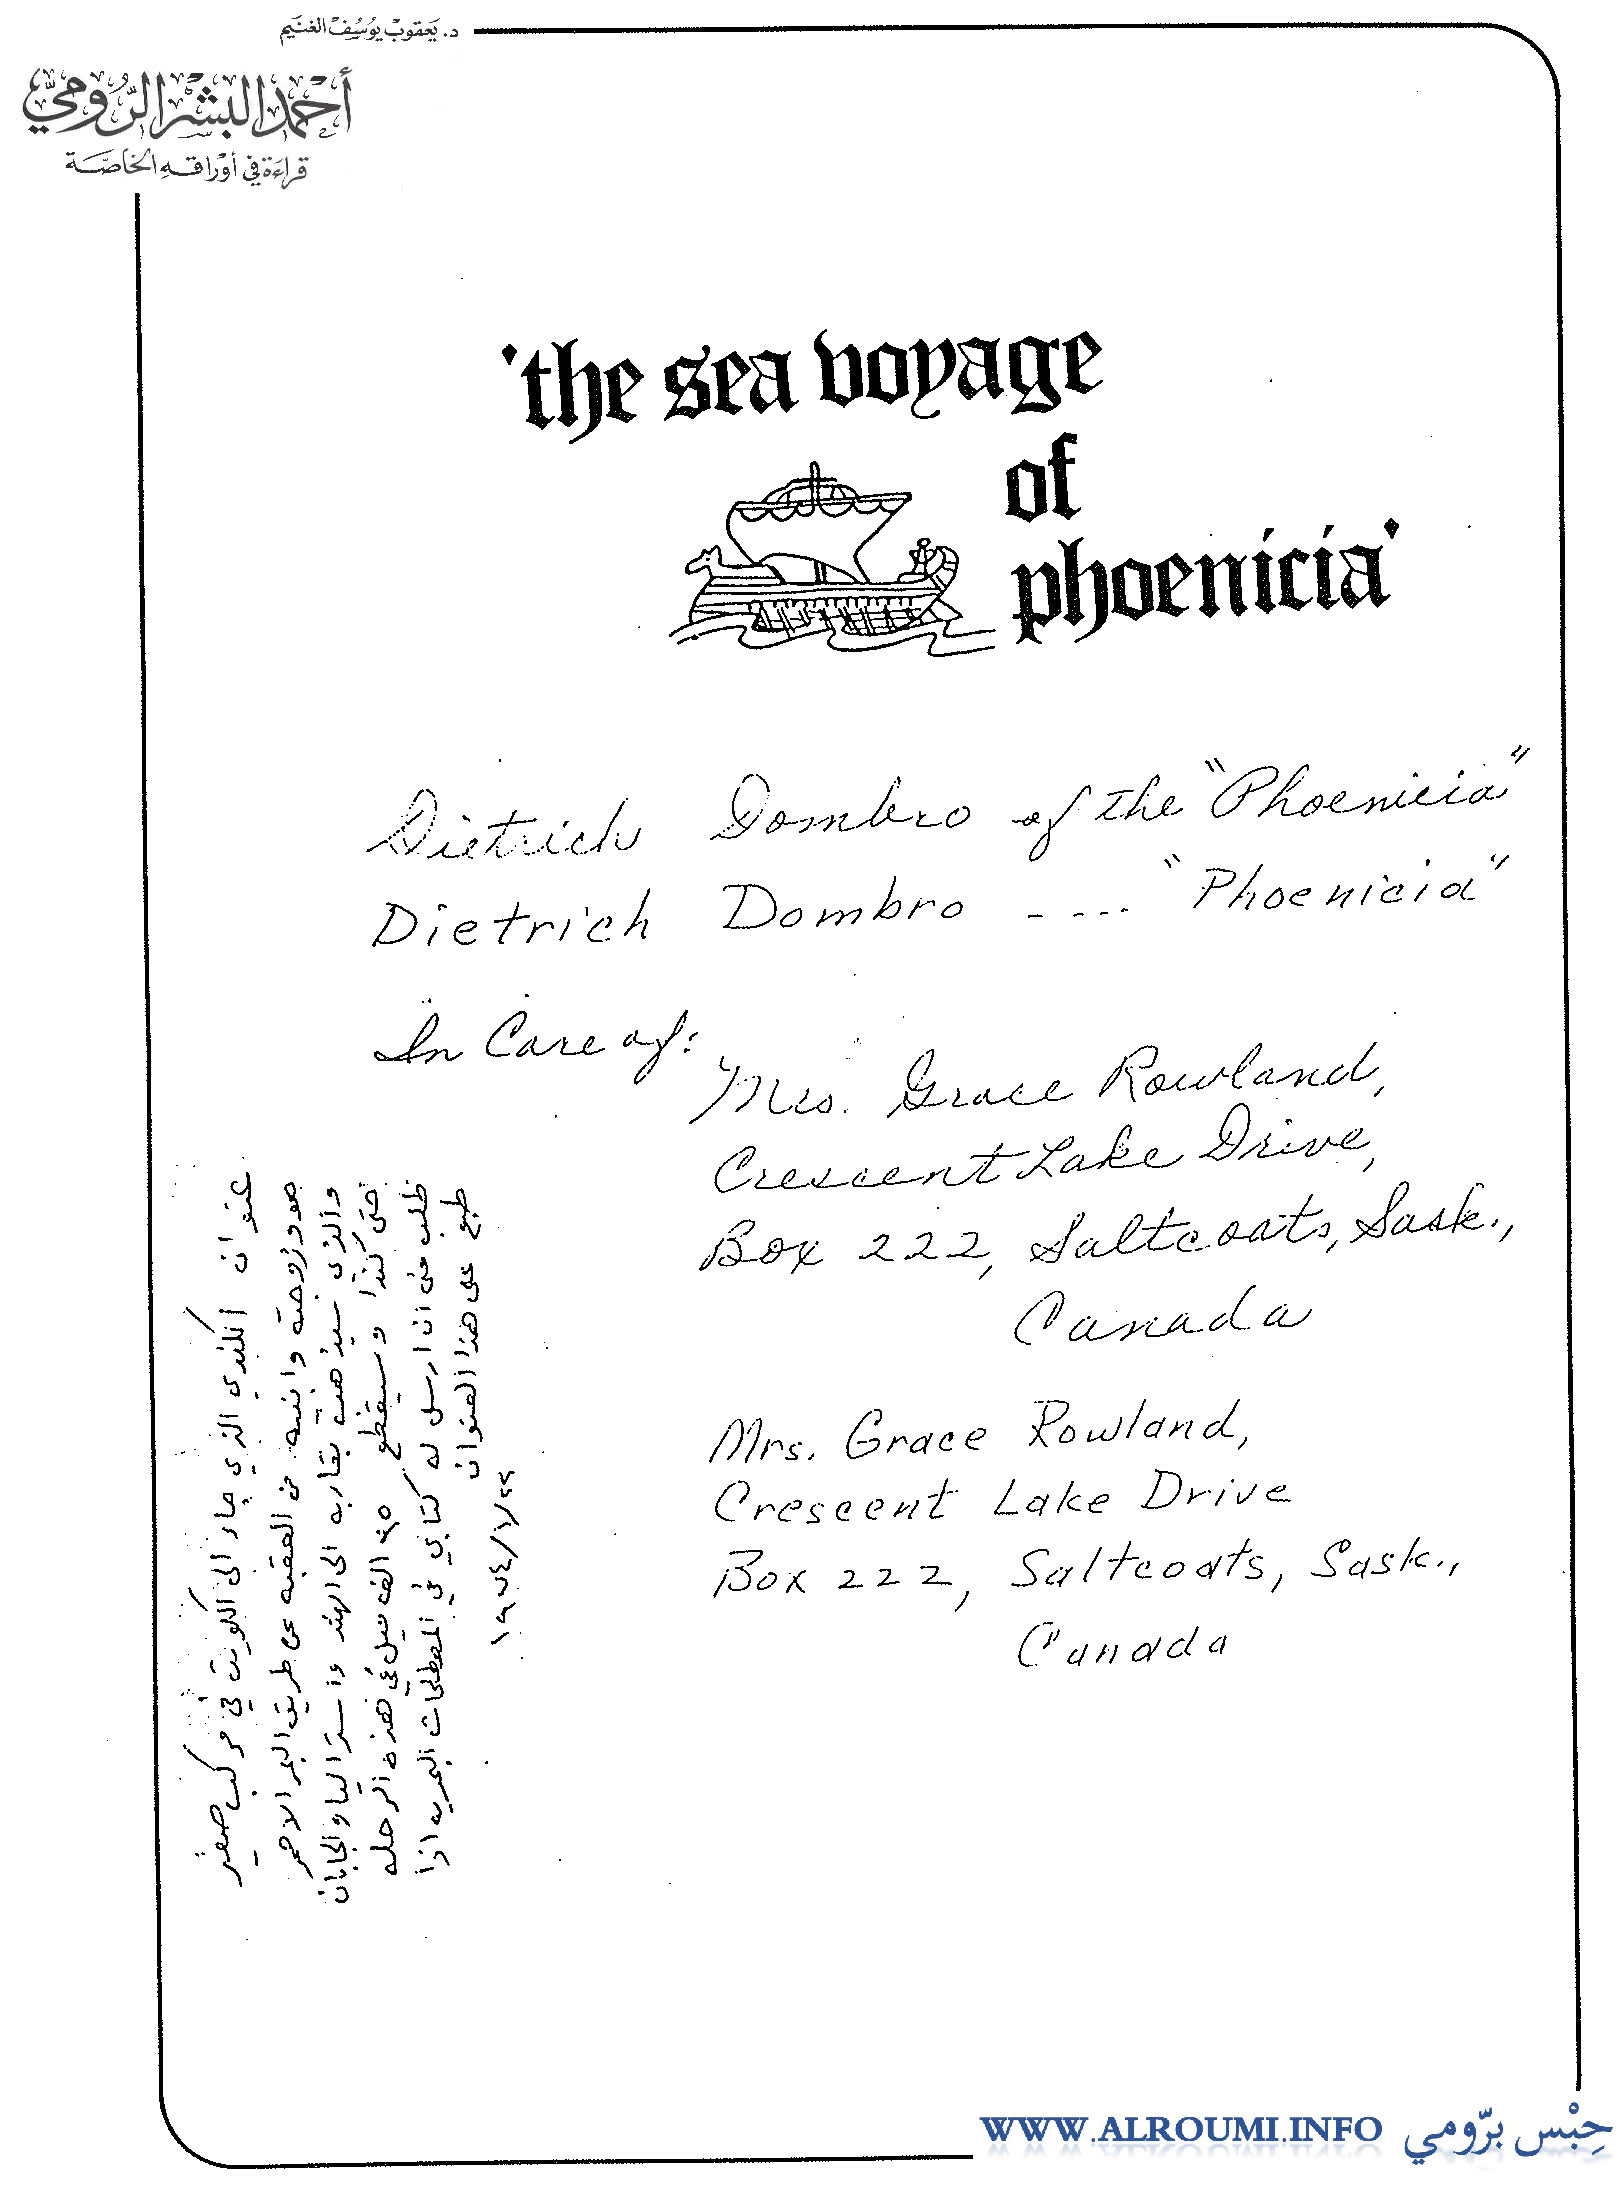 د. يَعقوبْ يوُسُف الغنَيم
أحمَد البشْر الرّومي
قراءَة في أوْرَاقهِ الخاصَّة
'the sea voyage
of
phoenicia'
Dietrich Dombro of the "Phoenicia"
Dietrich Dombro ---- "Phoenicia"
In Care of:
Mrs. Grace Rowland,
Crescent Lake Drive,
Box 222, Saltcoats, Sask.,
Canada
Mrs. Grace Rowland,
Crescent Lake Drive
Box 222, Saltcoats, Sask.,
Canada
عنوان الكندي الذي جاء الى الكويت في مركب صغير
هو وزوجته وابنيه من العقبه عن طريق البحر الاحمر
والذي سيذهب بقاربه الى الهند واستراليا واليابان
حتى كندا وسيقطع ٤٥ الف ميل في هذه الرحله
طلب مني ان ارسل له كتابي في المصطلحات البحريه اذا
طبع على هذا العنوان
١٩٧٤/١/٢٢
WWW.ALROUMI.INFO حِبْس برّومي